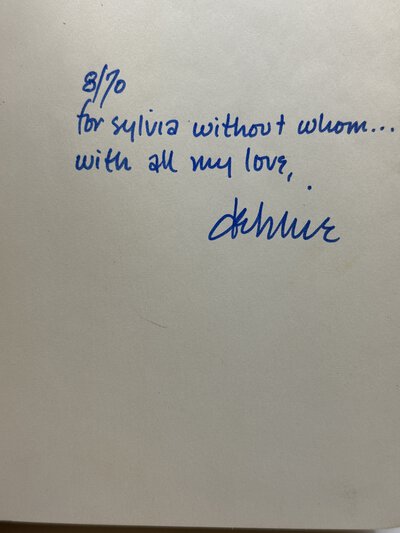 8/70
for sylvia without whom...
with all my love,
debbie